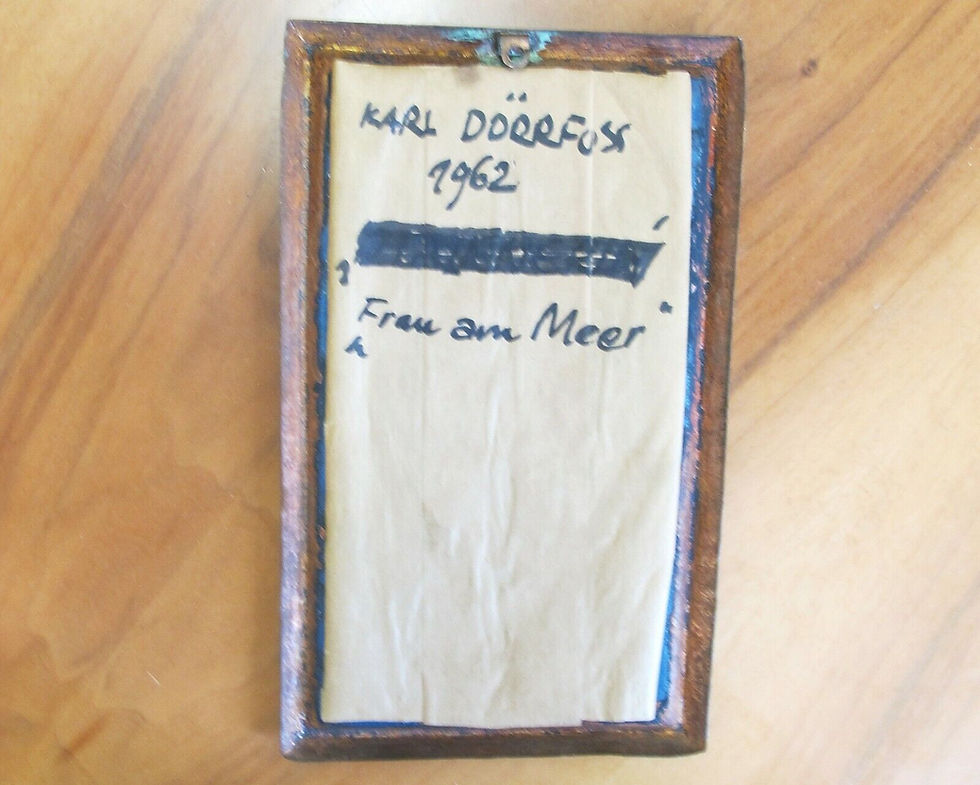 KARL DÖRRFUSS
1962
„Frau am Meer"